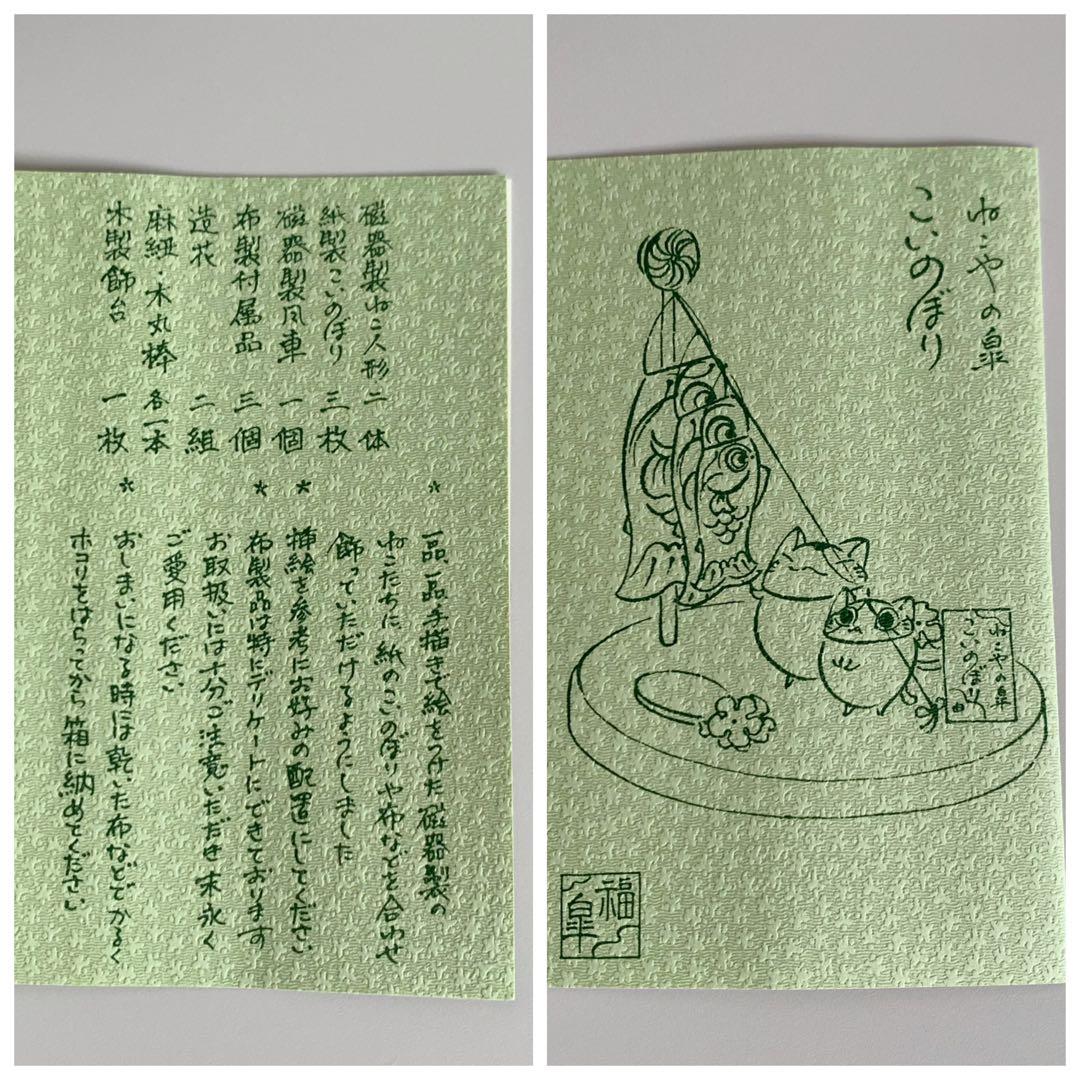 磁器製ねこ人形 二体
紙製こいのぼり 三枚
磁器製風車 一個
布製付属品 三個
造花 二組
麻紐・木丸棒 各一本
木製飾台 一枚
* 一品、一品手描きで絵をつけた磁器製の
ねこたちに 紙のこいのぼりや布などを合わせ
飾っていただけるようにしました
* 挿絵を参考にお好みの配置にしてください
* 布製品は特にデリケートにできております
お取扱いには十分ご注意いただき末永く
ご愛用ください
* おしまいになる時には乾いた布などでかるく
ホコリをはらってから箱に納めてください
ねこやの皐
こいのぼり
ねこやの皐
こいのぼり
福
皐